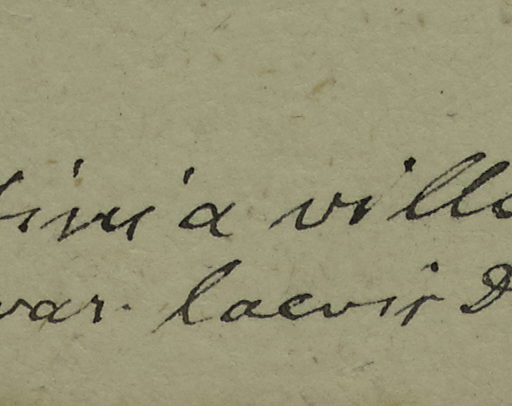 tinia villo
var. laevis D